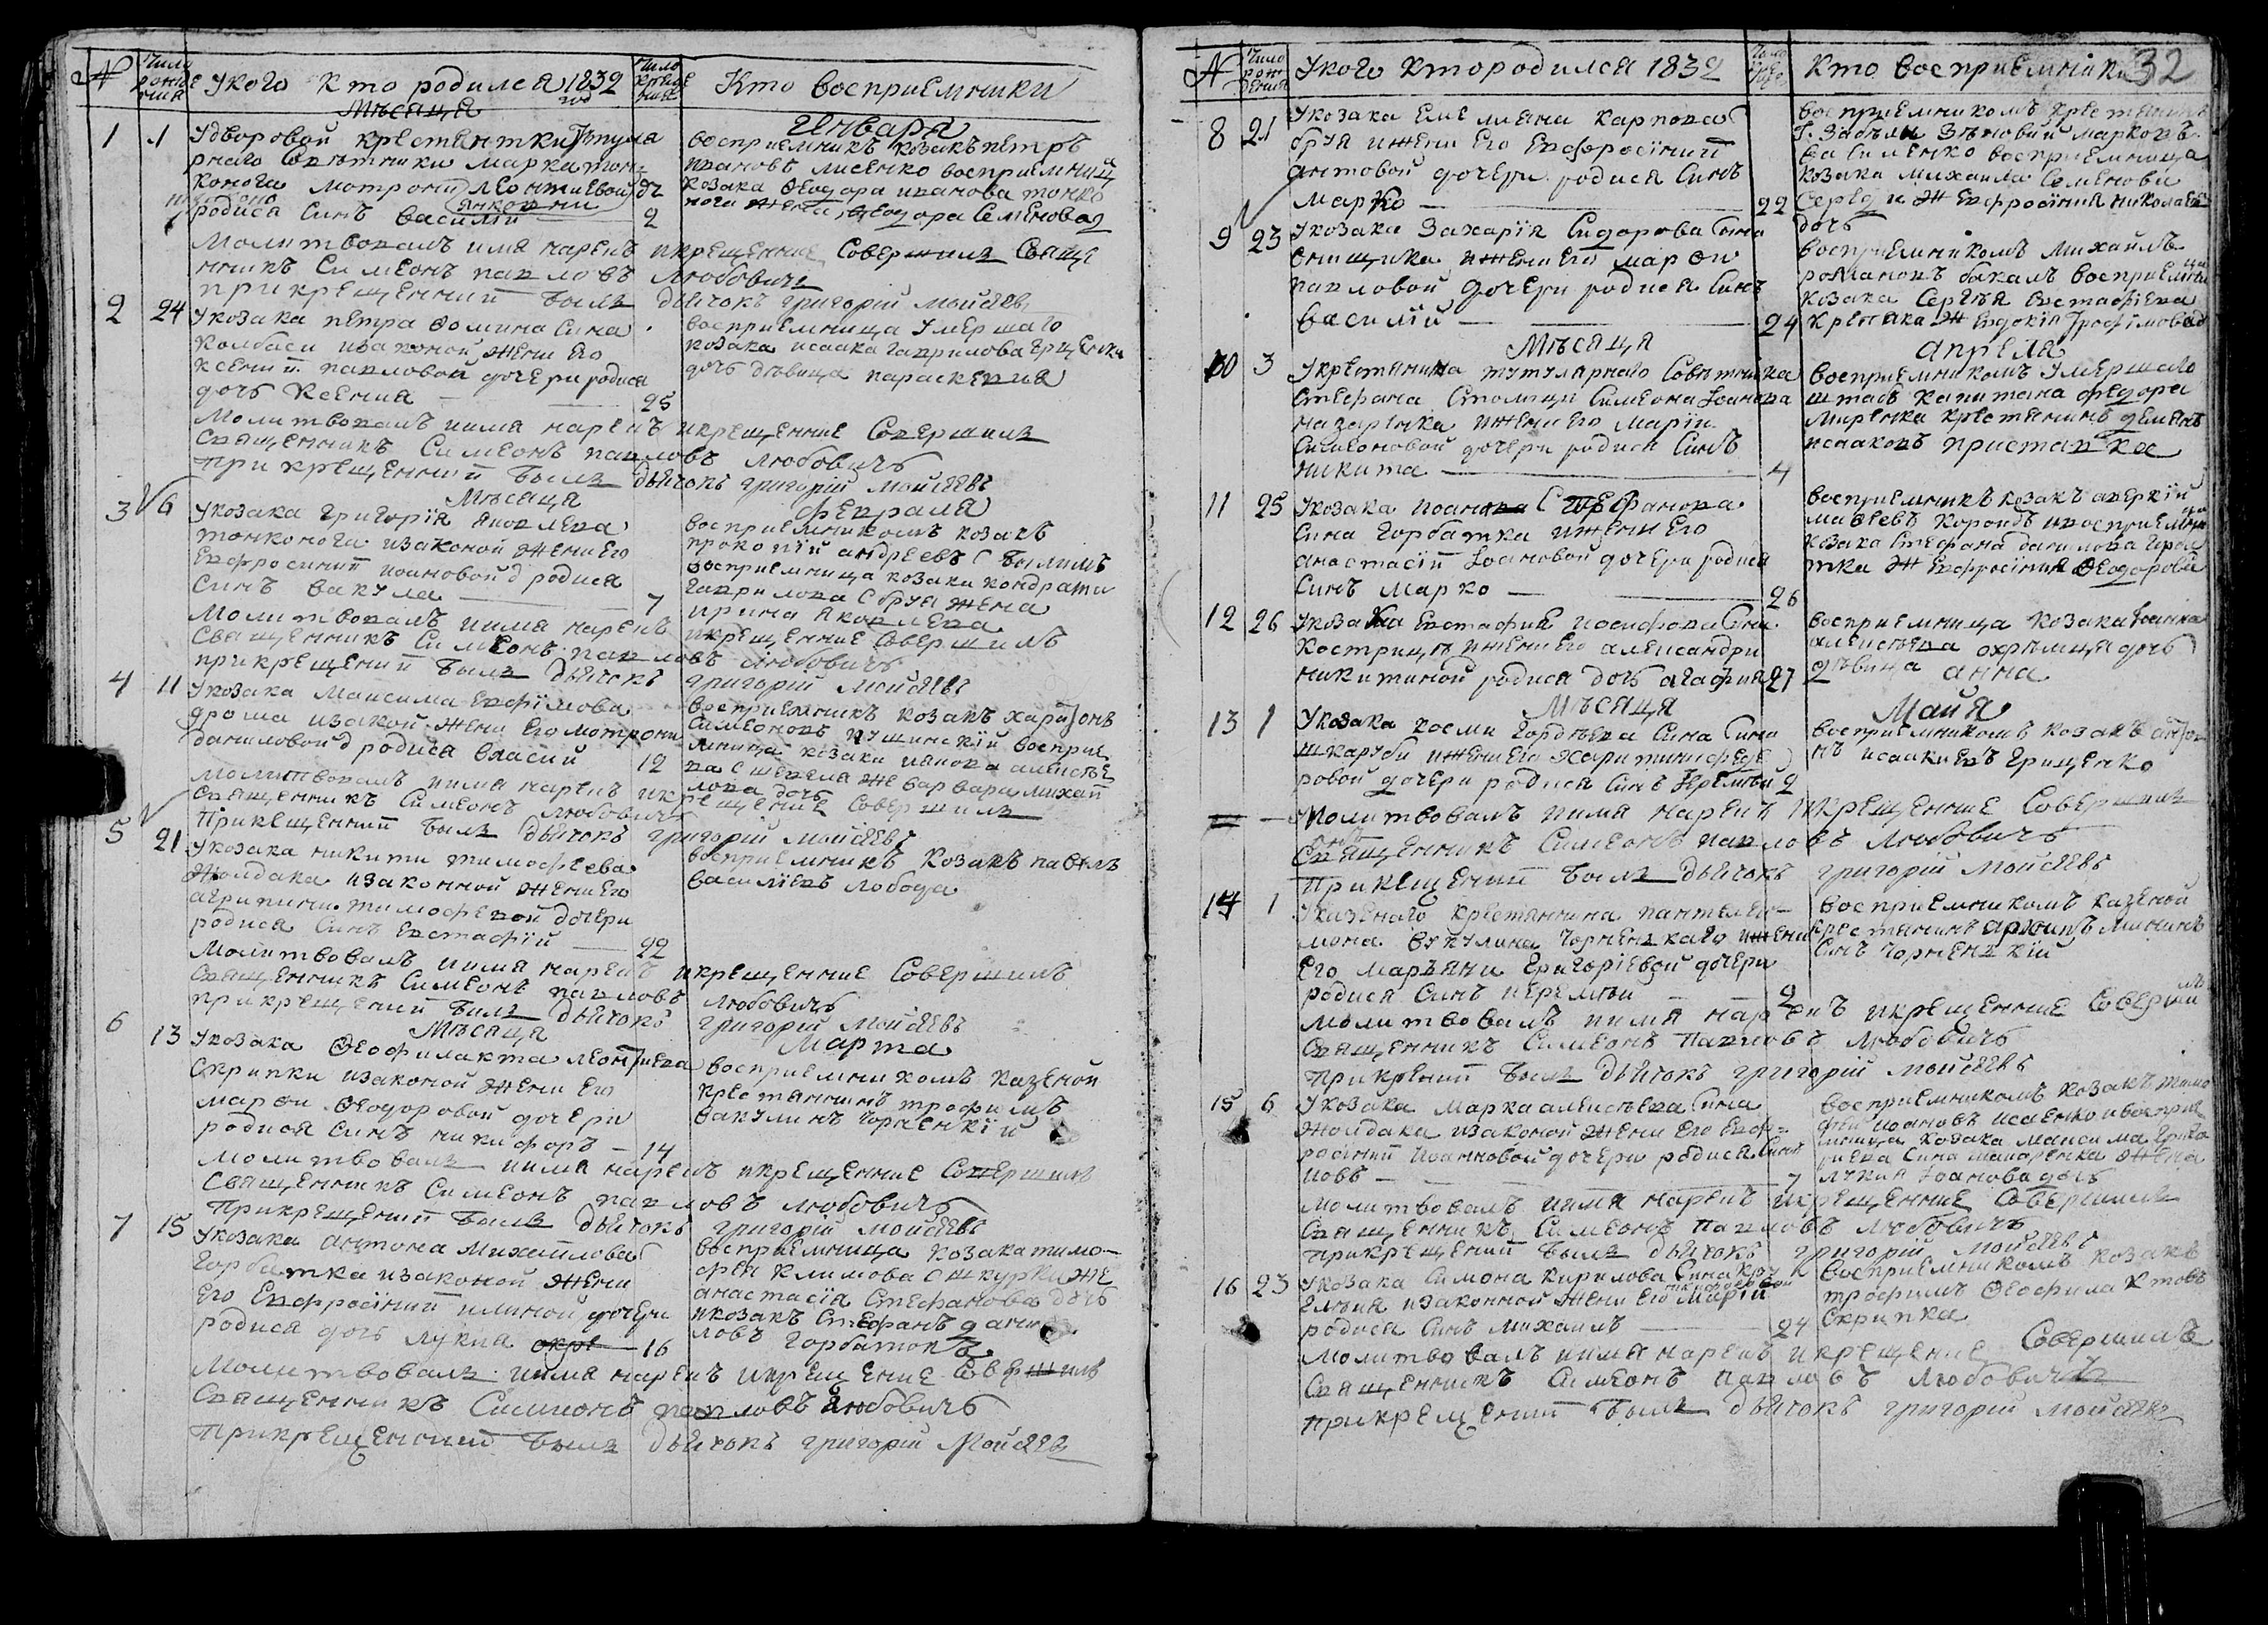 № Число рожде ния Укого Кто родился 1832 год Число креще ния Кто восприемники
Мѣсяца Генваря
1 1 Удворовой крестянтки Тѣтуля
рнаго Совѣтника марка тон-
конога мотрони леонтиевой дч
родися Синъ василии 2
восприемникъ козакъ петръ
ивановъ лисенко восприемница
козака Ѳеодора иванова тонко
ноги жена Ѳеодора Семенова д
Молитвовалъ имя нарекъ икрещенние Совершилъ Свяще
нникъ Симеонъ павловъ Любовичъ
прикрещенний былъ дьячокъ григорій моисѣевъ
2 24 Укозака петра Ѳомина Сина
Колбаси изаконой жени его
Ксении павловой дочери родися
дочь Ксения 25
восприемница умершаго
козака исаака гаврилова грищенка
дочь дѣвица параскевия
Молитвовалъ иимя нарекъ икрещенние Совершилъ
Священникъ Симеонъ павловъ Любовичъ
при крещенний былъ дьячокъ григорій моисѣевъ
Мѣсяца февраля
3 6 Укозака григорія яковлева
тонконога изаконой жени его
Евфросинии иоановой д родися
Синъ вакула 7
восприемникомъ козакъ
прокопій андреевъ
восприемница козака кондрата
гаврилова жена
ирина яковлева
Молитвовалъ иимя нарекъ икрещенние Совершилъ
Священникъ Симеонъ павловъ Любовичъ
прикрещений былъ дьячокъ григорій моисѣевъ
4 11 Укозака максима Евфімова
дроша изакой жени Его мотрони
даниловой д родися власий 12
восприемникъ козакъ харитонъ
Симеоновъ пушинскій восприе
мница козака иванова алексѣе
ва жена варвара михай
лова дочь
Молитвовалъ иимя нарекъ икрещение Совершилъ
Священникъ Симеонъ любовичъ
Прикрещенний былъ дьячокъ григорій моисѣевъ
5 21 Укозака никити тимофеева
жолдака изаконной жени его
агрипини тимофевой дочери
родися Синъ Евстафій 22
восприемникъ козакъ павелъ
василіевъ лобода
Молитвовалъ иимя нарекъ икрещенние Совершилъ
Священникъ Симеонъ павловъ любовичъ
прикрещений былъ дьячокъ григорій моисѣевъ
Мѣсяца Марта
6 13 Укозака Ѳеофилакта леонтиева
Скрипки изаконой жени Его
марфи Ѳеодоровой дочери
родися Синъ никифоръ 14
восприемникомъ казеной
крестянинъ трофимъ
вакулинъ чорненкій
Молитвовалъ иимя нарекъ икрещенние Совершилъ
Священникъ Симеонъ павловъ Любовичъ
Прикрещений былъ дьячокъ григорій моисѣевъ
7 15 Укозака антона михаилова
Горбатка изаконой жени
Его Евфросинии илиной дочери
родися дочь лукия 16
восприемница козака тимо-
феи климова жe
анастасія Стефанова дочь
икозакъ Стефанъ дани
ловъ Горбатокъ
Молитвовалъ иимя нарекъ икрещение Совершилъ
Священникъ Симионъ павловъ Любовичъ
Прикрещенний былъ дьячокъ григорій Моисѣевъ
№ Число рож дения Укого Кто родился 1832 Кто восприемники 32
8 21 Укозака Емелиана карпова
жени Его Евфросінии
антовой дочери родися Синъ
Марко 22
восприемникомъ крестянинъ
Г. Забѣли Зѣновий марковъ
василенко восприемница
козака михаила Семенова
Середи ж Евфросіния николаева
дочь
9 23 Укозака Захарія Сидорова Сина
онищика ижени его марфи
павловой дочери родися Синъ
василій 24
восприемникомъ михаилъ
романовъ бакалъ восприемница
козака Сергѣя Евстафіева
ж Евдокія трофімова д
Мѣсяца апреля
10 3 Укрестянина тутулярнаго Совѣтника
Стефана Столици Симеона Іоанова
назаренка ижени его марїи
Симеоновой дочери родися Синъ
никита 4
восприемникомъ умершаго
штабъ капитана федора
Миренка крестянинъ демянъ
исаковъ
11 25 Укозака иоана Стефанова
Сина горбатка ижени Его
анастасіи Іоановой дочери родися
Синъ Марко 26
восприемникъ козакъ аверкій
матѳеевъ коробдъ ивосприемница
козака Стефана данилова горба
тка ж Евфросиния Ѳеодорова
12 26 Укозака Евстафие иосифова Сина
Кострици ижени Его александри
никитиной родися дочъ агафия 27
восприемница козака Іоанна
алексѣева охрѣмця дочь
дѣвица анна
Мѣсяца Майя
13 1 Укозака косми гордѣева Сина Сина
шкаруби ижени его харитини федо
ровой дочери родися Синъ Іеремѣи 2
восприемникомъ козакъ антон
нъ исаакиевъ Грищенко
Молитвовалъ иимя нарекъ икрещенние Совершилъ
Священникъ Симеонъ павловъ Любовичъ
Прикрещений былъ дьячокъ григорій моисѣевъ
14 1 Указенаго крестянина пантелеи-
мона вукулина чорненкаго ижени
Его маріяни Григоріевой дочери
родися Синъ иеремѣи 2
восприемникомъ казеной
крестянинъ архипъ мининъ
Синъ чорненкій
Молитвовалъ иимя нарекъ икрещенние Соверши
лъ
Священникъ Симеонъ Павловъ Любовичъ
Прикрений былъ дьячокъ григорій моисѣевъ
15 6 Укозака Марка алексѣева Сина
жолдака изаконой жени Его Евф-
росінии Иоанновой дочери родися Синъ
иовъ 7
восприемникомъ козакъ тимо
фей иоановъ исаенко ивосприе
мница козака максима Григо
риева Сина макаренка жена
лукия Іоанова дочь
Молитвовалъ иимя нарекъ икрещенние Совершилъ
Священникъ Симеонъ Павловъ Любовичъ
Прикрещений былъ дьячокъ григорій моисѣевъ
16 23 Укозака Симона кирилова Сина
изаконной жени его Марїи
родися Синъ михаилъ 24
восприемникомъ козакъ
трофимъ Ѳеофилактовъ
Скрипка
Молитвовалъ иимя нарекъ икрещение Совершилъ
Священникъ Симеонъ павловъ Любовичъ
прикрещений былъ дьячокъ григорий моисѣевъ